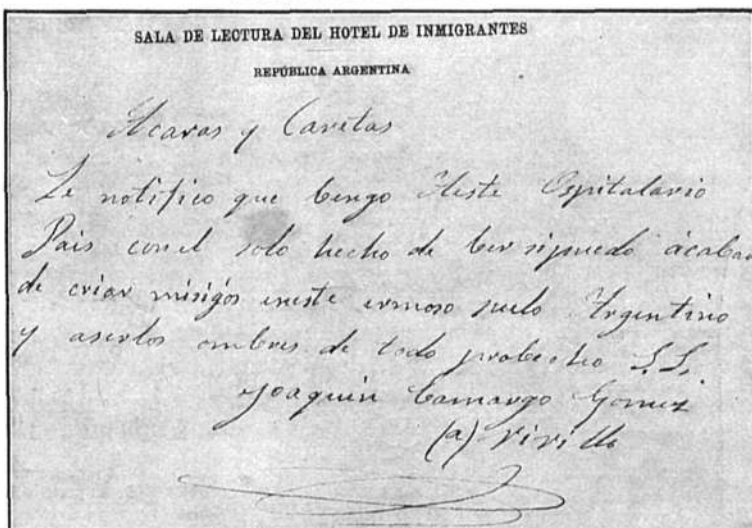 SALA DE LECTURA DEL HOTEL DE INMIGRANTES
REPÚBLICA ARGENTINA
Acaras y Caretas
Le notifico que bengo Aeste Ospitalario
Pais conel solo hecho de ber sipuedo acabar
de criar misigos eneste ermoso suelo Argentino
y aserlos ombres de todo probecho S.S.
Joaquin Camargo Gomez
(a) Vivillo